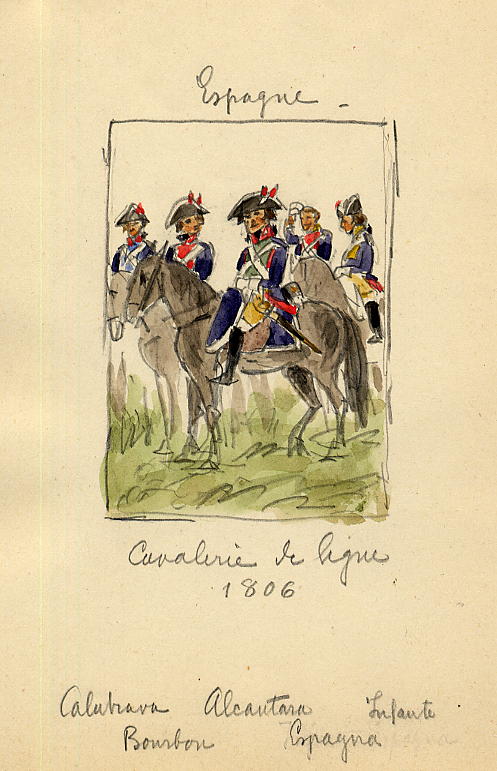 Espagne -
Cavalerie de ligne
1806
Calatrava Alcantara Infante
Bourbon Espagna